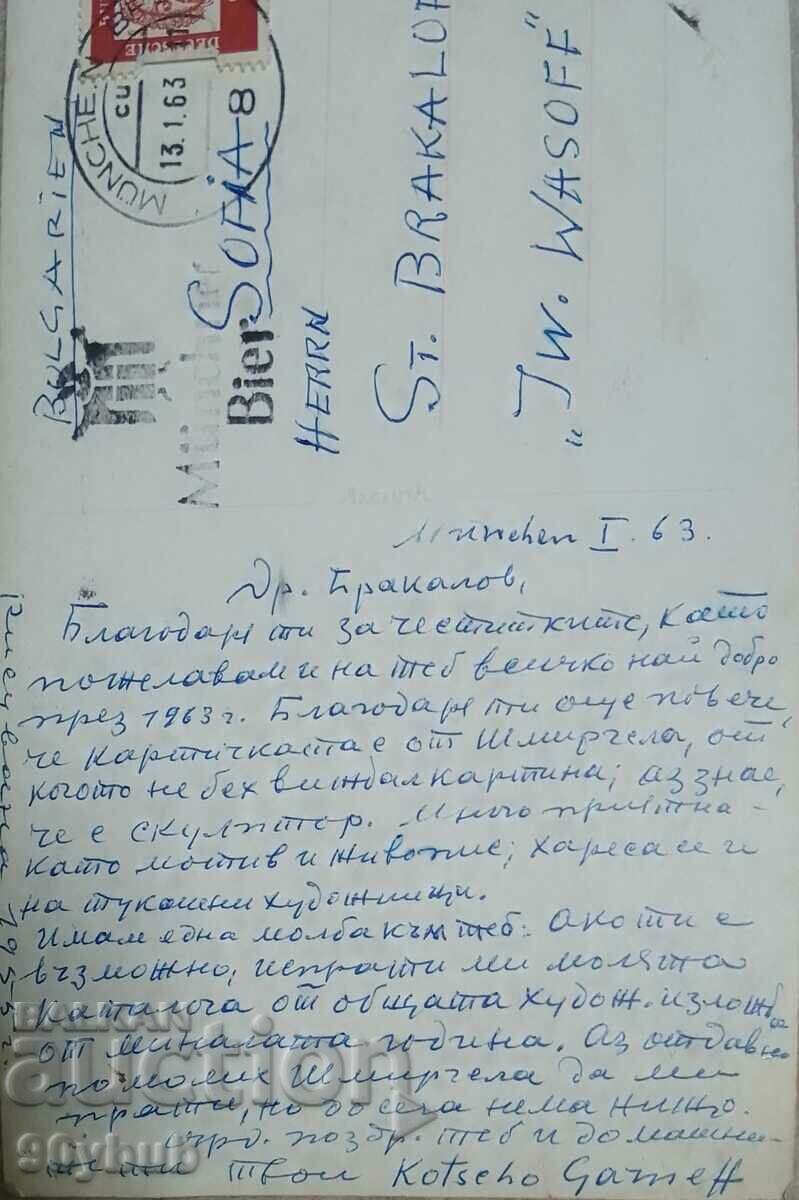 DEUTSCHE
MÜNCHEN
13.1.63
Münchner
Bier
BULGARIEN
SOFIA 8
HERRN
ST. BRAKALOFF
"IW. WASOFF"
München I. 63.
Др. Бракалов,
Благодаря ти за честитките, като
пожелавам и на теб всичко най добро
през 1963 г. Благодаря ти още повече,
че картичката е от Шмиргела, от
когото не бех виждал картина; аз знае,
че е скулптор. Много приятна
като мотив и живопис; хареса се и
на тукашни художници.
Имам една молба към теб: Ако ти е
възможно, изпрати ми молята
каталога от общата худож. изложба
от миналата година. Аз отдавно
помолих Шмиргела да ми
прати, но досега нема нищо.
Сърд. поздр. теб и домашни-
те ти твой Kotscho Garneff
1955 г.
BALKAN
auction
90yhub